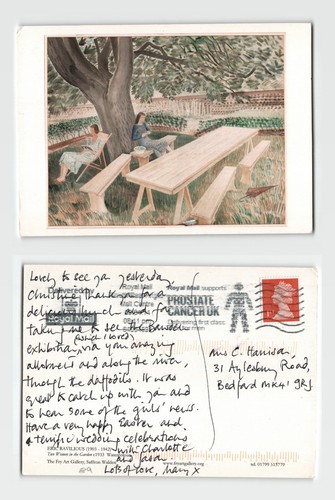 Lovely to see you yesterday,
Christine, thank you for a
delicious lunch and for
taking me to see the Bawden
(which I loved)
exhibition, via your amazing
allotments and along the river,
through the daffodils. It was
great to catch up with you and
to hear some of the girls' news.
Have a very happy Easter and
a terrific wedding celebrations
with Charlotte
and
Lots of love, Mary x
Delivered by
Royal Mail
Royal Mail
Mail Centre
Royal Mail supports
PROSTATE
CANCER UK
Delivering first class
Mrs C. Harrison
31 Aylesbury Road,
Bedford MK41 9RJ
ERIC RAVILIOUS (1903 - 1942)
Two Women in the Garden (1933)
The Fry Art Gallery, Saffron Walden
www.fryartgallery.org